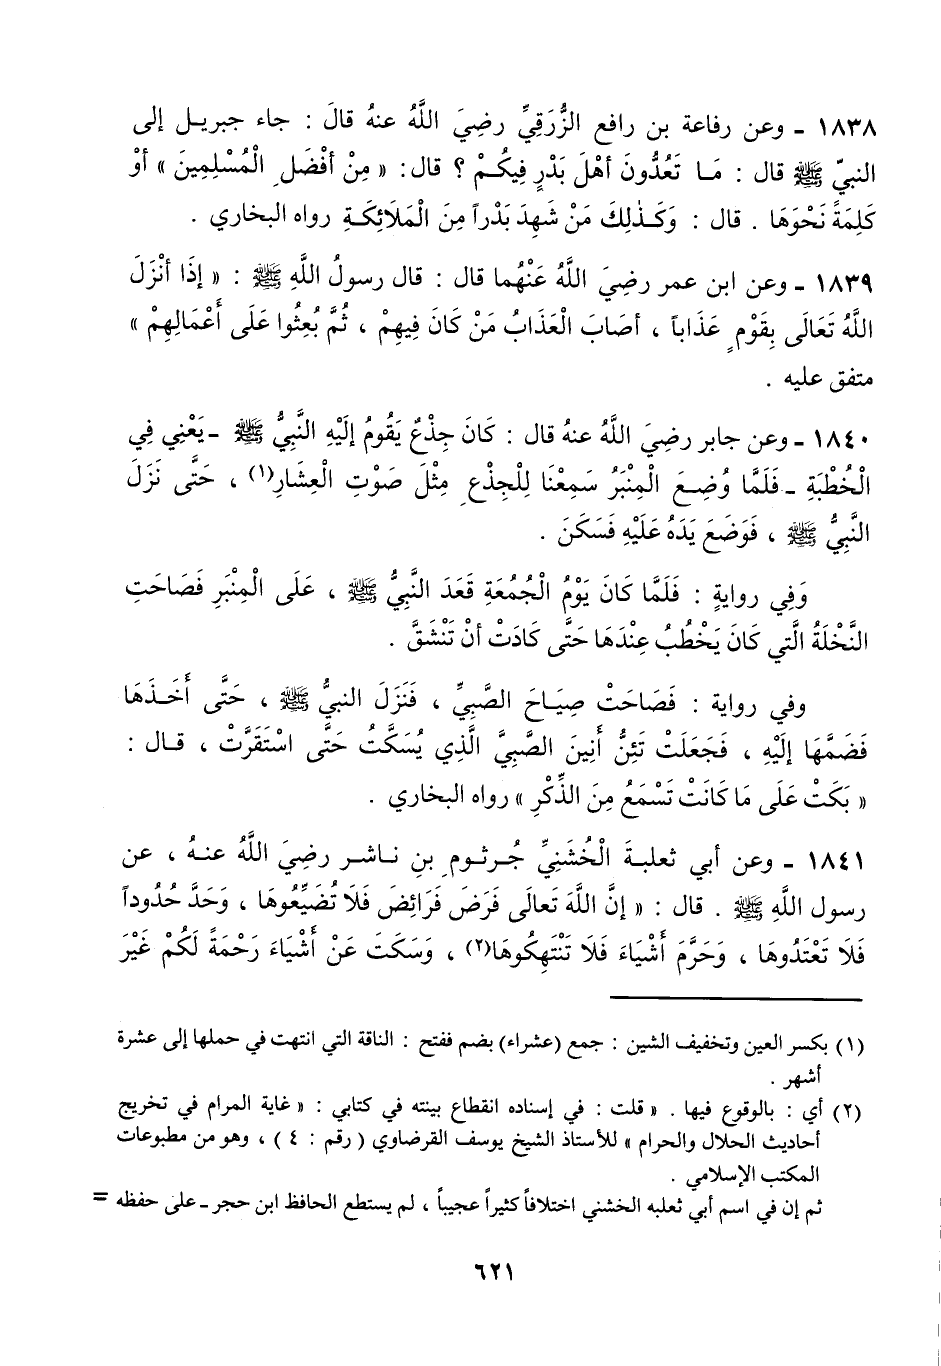 ١٨٣٨ ـ وعن رفاعة بن رافع الزُّرَقِيِّ رضِيَ اللَّهُ عنهُ قالَ : جاء جبريل إلى
النبيّ ﷺ قال : مَا تَعُدُّونَ أهْلَ بَدْرٍ فِيكُمْ ؟ قال : « مِنْ أفْضَلِ الْمُسْلِمِينَ » أوْ
كَلِمَةً نَحْوَهَا . قال : وَكَذٰلِكَ مَنْ شَهِدَ بَدْراً مِنَ الْمَلَائِكَةِ رواه البخاري .
١٨٣٩ ـ وعن ابن عمر رضِيَ اللَّهُ عَنْهُما قال : قال رسولُ اللَّهِ ﷺ : « إذَا أنْزَلَ
اللَّهُ تَعَالَى بِقَوْمٍ عَذَاباً ، أصَابَ الْعَذَابُ مَنْ كَانَ فِيهِمْ ، ثُمَّ بُعِثُوا عَلَى أَعْمَالِهِمْ »
متفق عليه .
١٨٤٠ ـ وعن جابر رضِيَ اللَّهُ عنهُ قال : كَانَ جِذْعٌ يَقُومُ إلَيْهِ النَّبِيُّ ﷺ ـ يَعْنِي فِي
الْخُطْبَةِ ـ فَلَمَّا وُضِعَ الْمِنْبَرُ سَمِعْنَا لِلْجِذْعِ مِثْلَ صَوْتِ الْعِشَارِ(١) ، حَتَّى نَزَلَ
النَّبِيُّ ﷺ ، فَوَضَعَ يَدَهُ عَلَيْهِ فَسَكَنَ .
وَفِي روايةٍ : فَلَمَّا كَانَ يَوْمُ الْجُمُعَةِ قَعَدَ النَّبِيُّ ﷺ ، عَلَى الْمِنْبَرِ فَصَاحَتِ
النَّخْلَةُ الَّتِي كَانَ يَخْطُبُ عِنْدَهَا حَتَّى كَادَتْ أنْ تَنْشَقَّ .
وفي رواية : فَصَاحَتْ صِيَاحَ الصَّبِيِّ ، فَنَزَلَ النبيُّ ﷺ ، حَتَّى أَخَذَهَا
فَضَمَّهَا إلَيْهِ ، فَجَعَلَتْ تَئِنُّ أَنِينَ الصَّبِيَّ الَّذِي يُسَكَّتُ حَتَّى اسْتَقَرَّتْ ، قال :
« بَكَتْ عَلَى مَا كَانَتْ تَسْمَعُ مِنَ الذِّكْرِ » رواه البخاري .
١٨٤١ ـ وعن أبي ثعلبةَ الْخُشَنِيِّ جُرثومِ بنِ ناشر رضِيَ اللَّهُ عنهُ ، عن
رسول اللَّهِ ﷺ . قال : « إنَّ اللَّهَ تَعالَى فَرَضَ فَرَائِضَ فَلَا تُضَيِّعُوهَا ، وَحَدَّ حُدُوداً
فَلَا تَعْتَدُوهَا ، وَحَرَّمَ أَشْيَاءَ فَلَا تَنْتَهِكُوهَا(٢) ، وَسَكَتَ عَنْ أَشْيَاءَ رَحْمَةً لَكُمْ غَيْرَ
(١) بكسر العين وتخفيف الشين : جمع (عشراء) بضم ففتح : الناقة التي انتهت في حملها إلى عشرة
أشهر .
(٢) أي : بالوقوع فيها . « قلت : في إسناده انقطاع بينته في كتابي : « غاية المرام في تخريج
أحاديث الحلال والحرام » للأستاذ الشيخ يوسف القرضاوي ( رقم : ٤ ) ، وهو من مطبوعات
المكتب الإسلامي .
ثم إن في اسم أبي ثعلبه الخشني اختلافاً كثيراً عجيباً ، لم يستطع الحافظ ابن حجر ـ على حفظه =
٦٢١